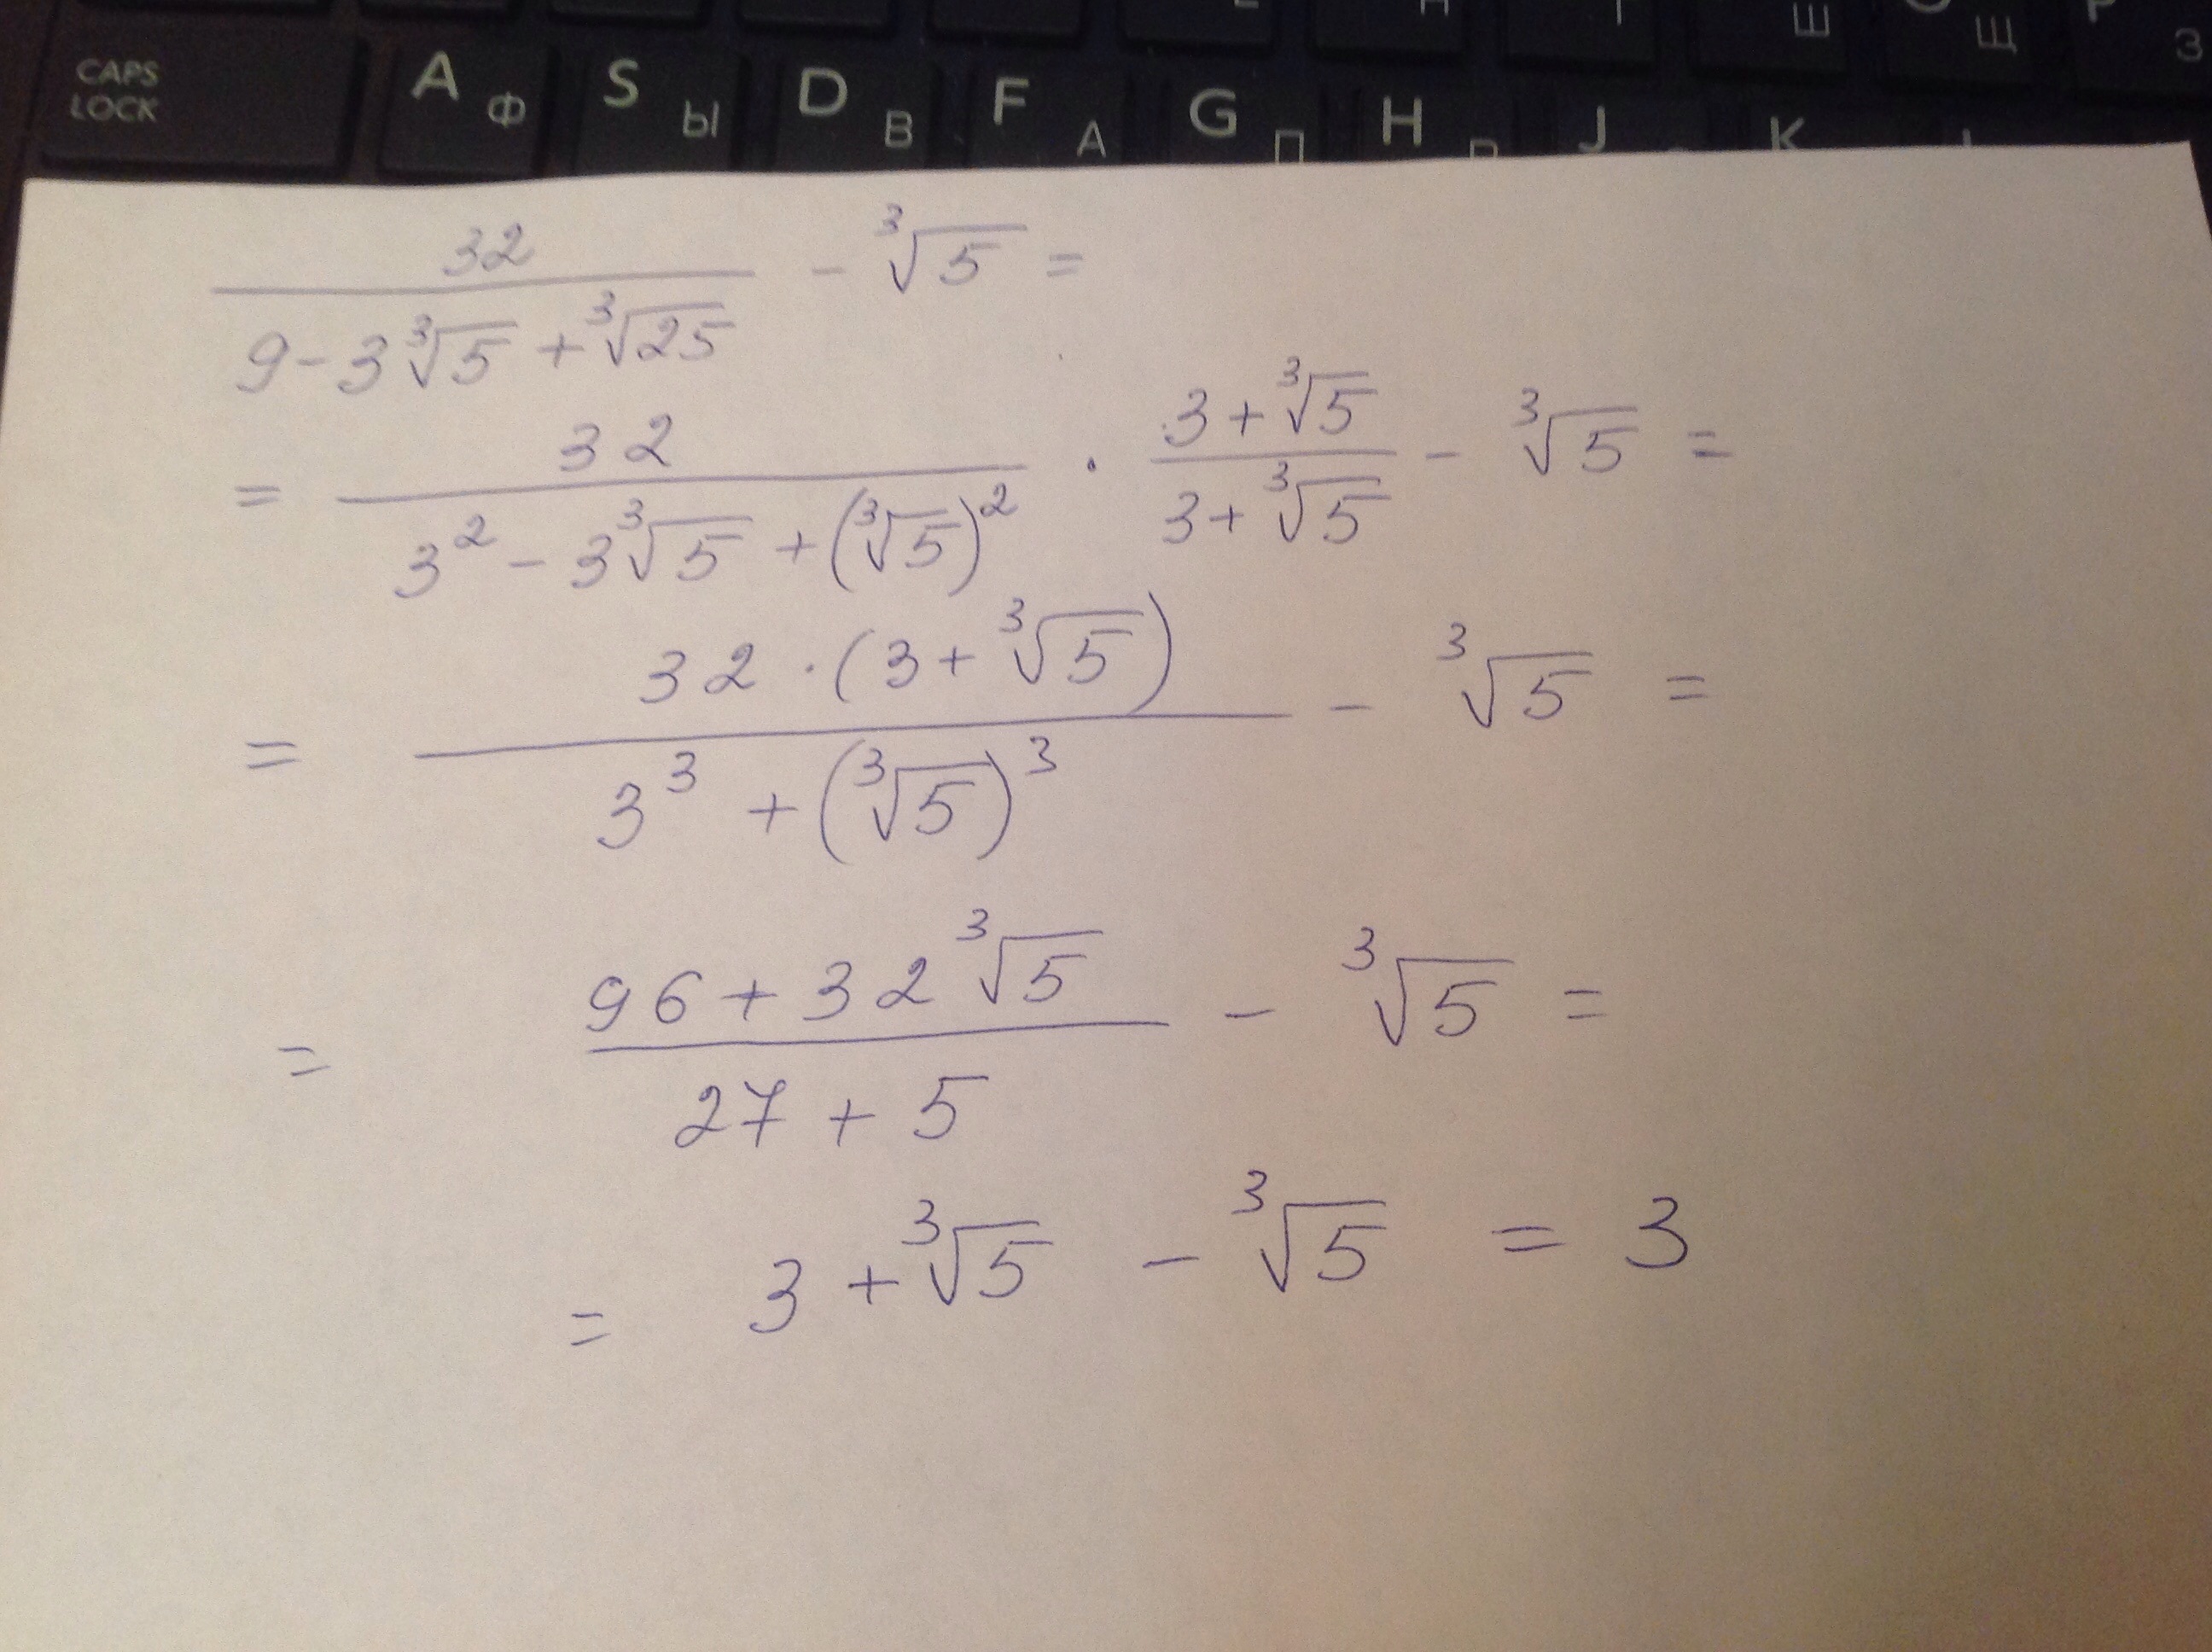 CAPS
LOCK A Ф S Ы D В F А G П H J K
Ш Щ З
32/(9 - 3∛5 + ∛25) - ∛5 =
= 32/(3² - 3∛5 + (∛5)²) · (3 + ∛5)/(3 + ∛5) - ∛5 =
= 32 · (3 + ∛5)/(3³ + (∛5)³) - ∛5 =
= (96 + 32∛5)/(27 + 5) - ∛5 =
= 3 + ∛5 - ∛5 = 3